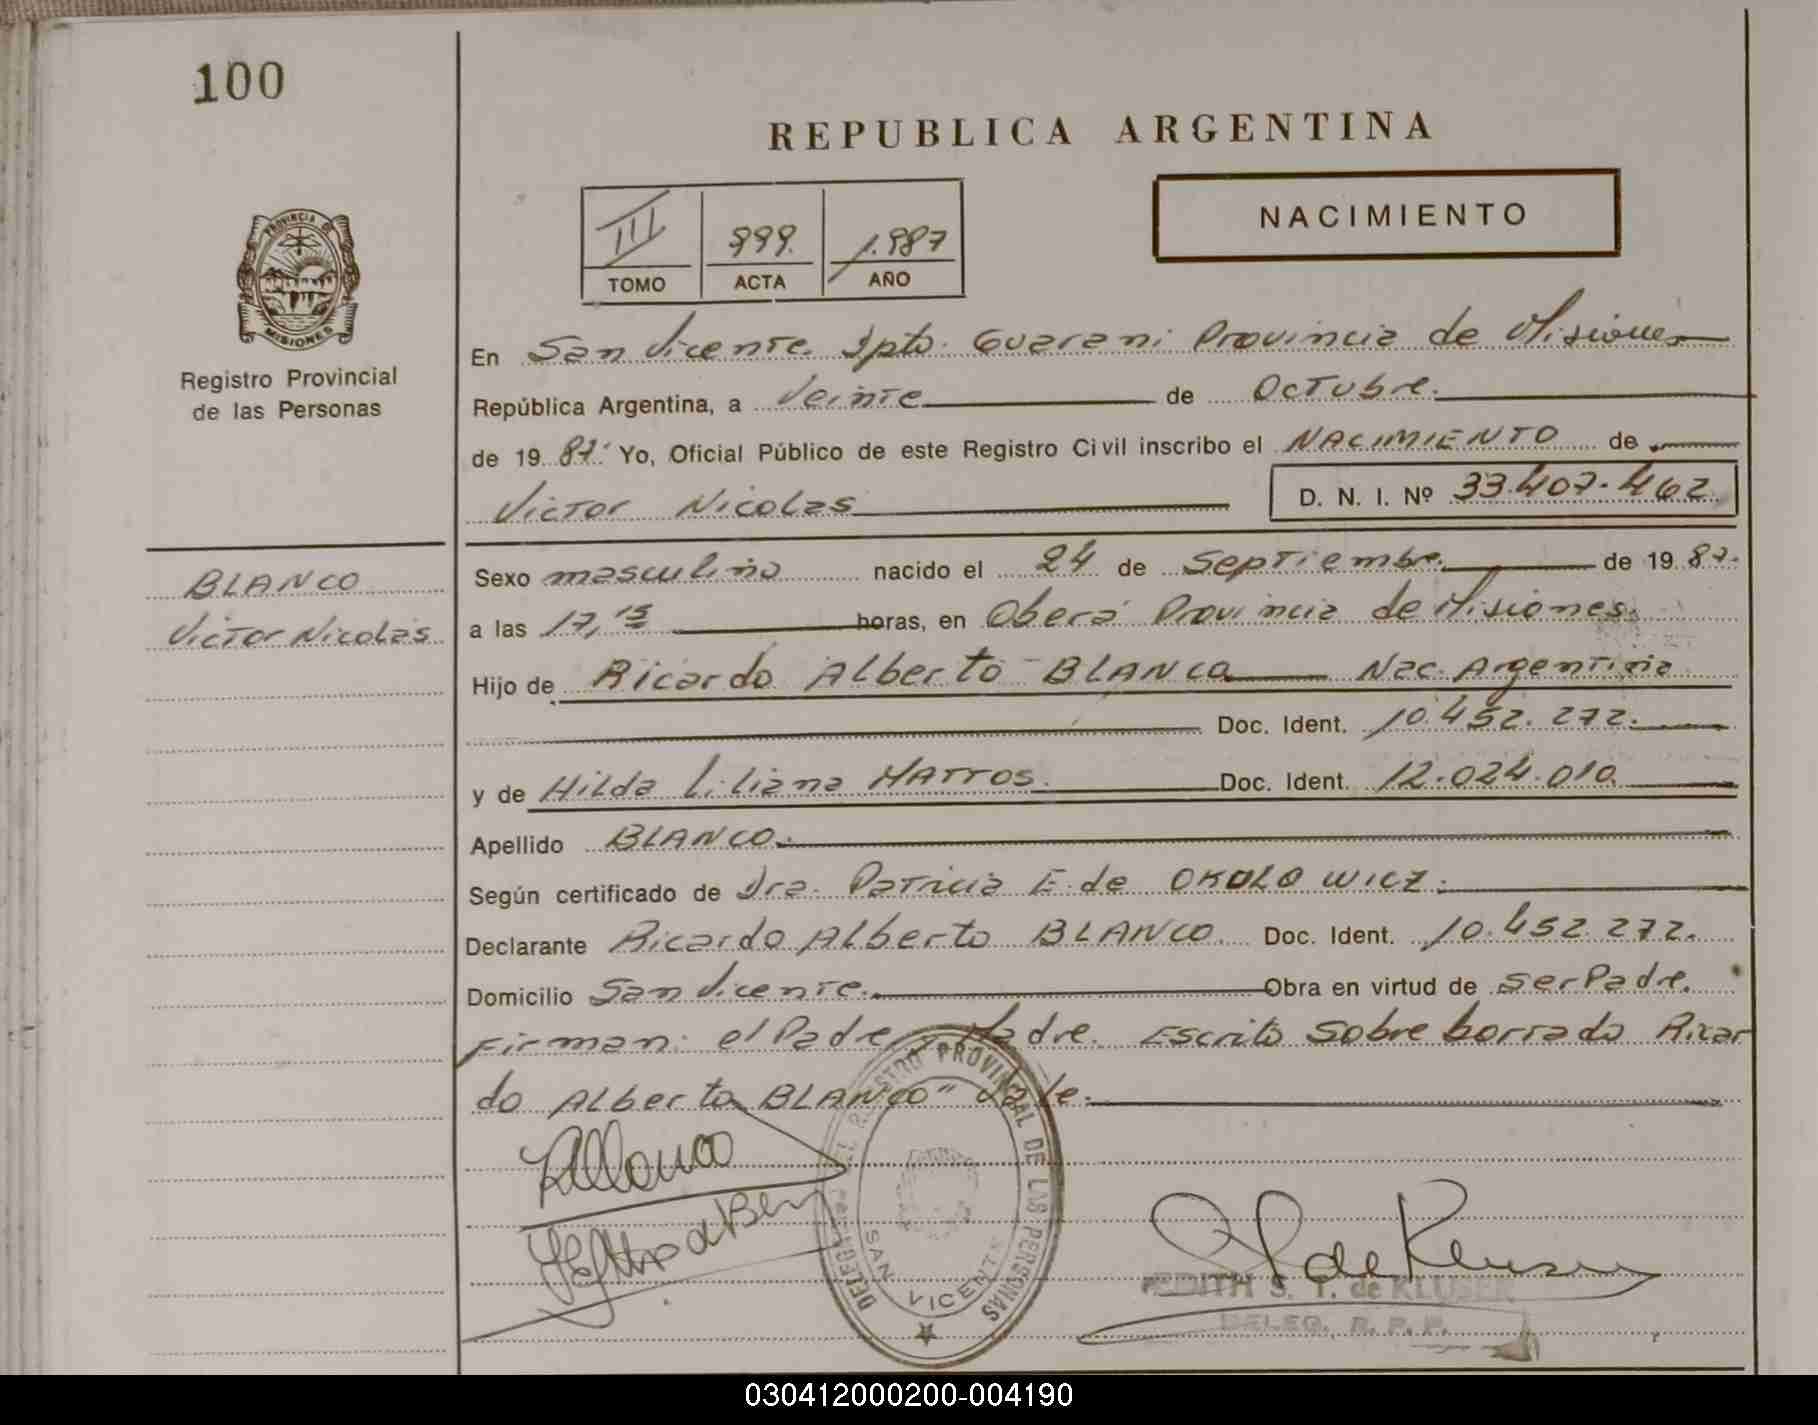 100
REPUBLICA ARGENTINA
NACIMIENTO
III 999. 1.987
TOMO ACTA AÑO
PROVINCIA DE
MISIONES
Registro Provincial
de las Personas
En San Vicente. Dpto. Guarani Provincia de Misiones
República Argentina, a Veinte de Octubre.
de 19 87. Yo, Oficial Público de este Registro Civil inscribo el NACIMIENTO de
Victor Nicolas D. N. I. Nº 33.407.462
BLANCO
Victor Nicolas
Sexo masculino nacido el 24 de Septiembre. de 19 87.
a las 17,15 horas, en Oberá Provincia de Misiones.
Hijo de Ricardo Alberto BLANCO Nac. Argentina
Doc. Ident. 10.452.272.
y de Hilda Liliana MATTOS. Doc. Ident. 12.024.010.
Apellido BLANCO.
Según certificado de Dra. Patricia E. de OKOLOWICZ.
Declarante Ricardo Alberto BLANCO. Doc. Ident. 10.452.272.
Domicilio San Vicente. Obra en virtud de ser Padre.
Firman: el Padre y Madre. Escrito sobre borrado Ricar
do Alberto BLANCO" Vale.
DELEGACION DEL REGISTRO PROVINCIAL DE LAS PERSONAS
SAN VICENTE
EDITH S. T. de KLUSER
DELEG. R. P. P.
030412000200-004190